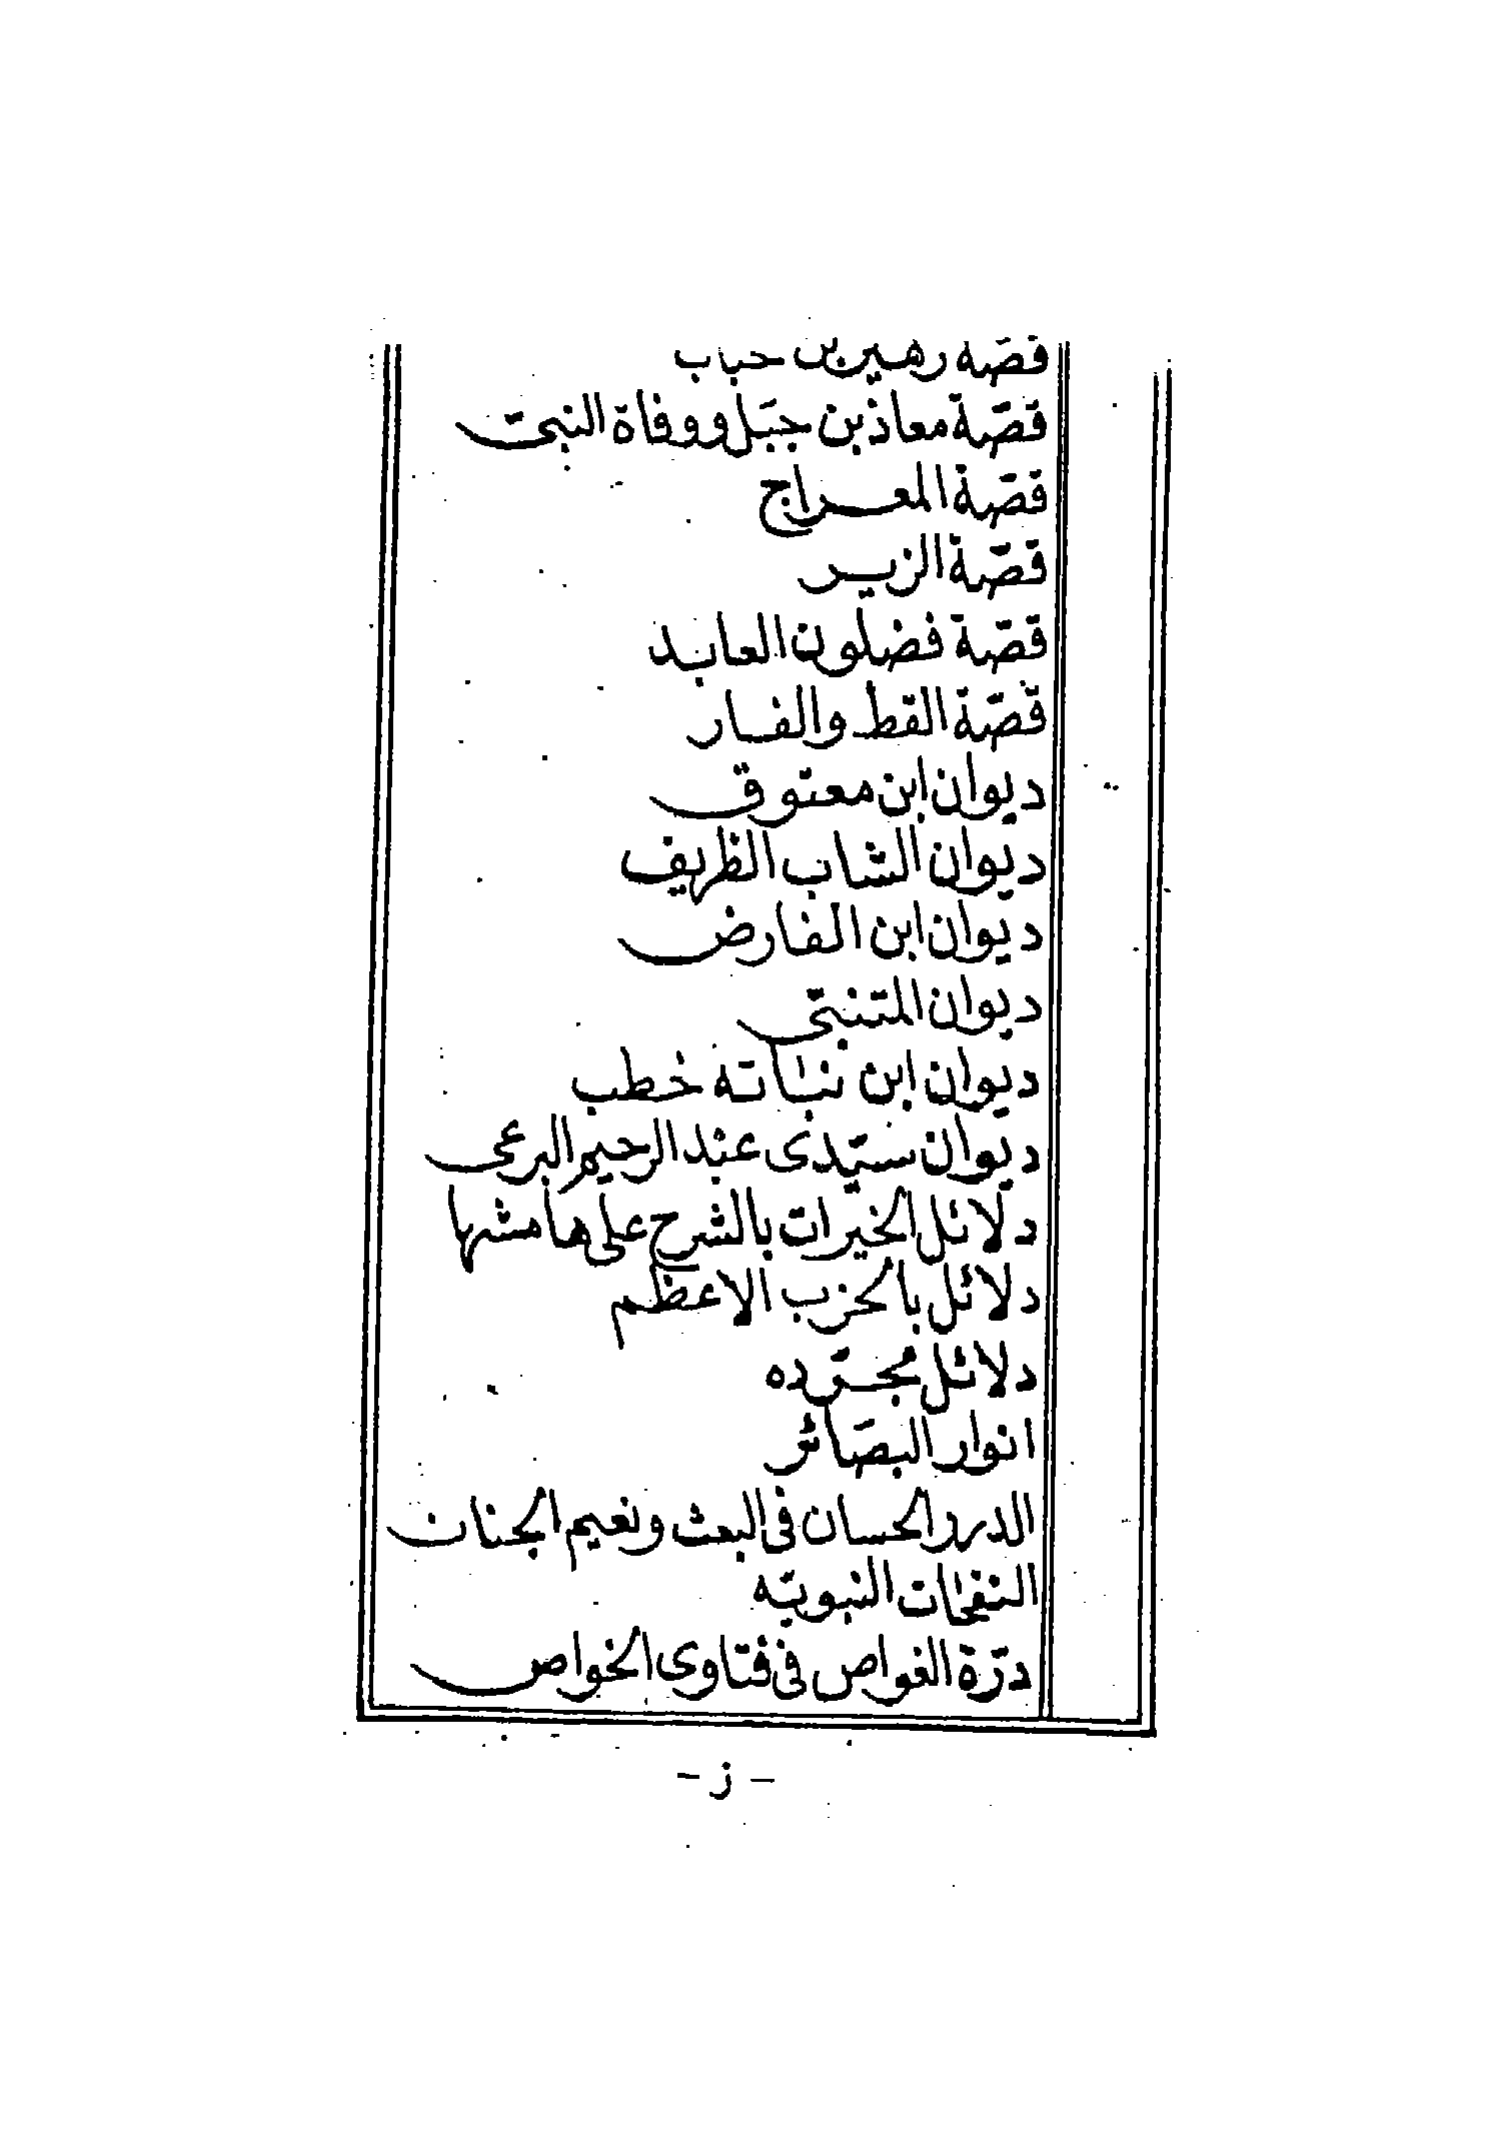 قصّة زهير بن حباب
قصّة معاذ بن جبَل ووفاة النبىّ
قصّة المعراج
قصّة الزير
قصّة فضلون العابد
قصّة القط والفار
ديوان ابن معتوق
ديوان الشاب الظريف
ديوان ابن الفارض
ديوان المتنبّى
ديوان ابن نباته خطب
ديوان سيّدى عبد الرحيم البرعى
دلائل الخيرات بالشرح على هامشها
دلائل بالحزب الاعظم
دلائل مجرّده
انوار البصَائر
الدرر الحسان فى البعث ونعيم الجنان
النفحات النبويّه
درّة الغواص فى فتاوى الخواص
- ز -